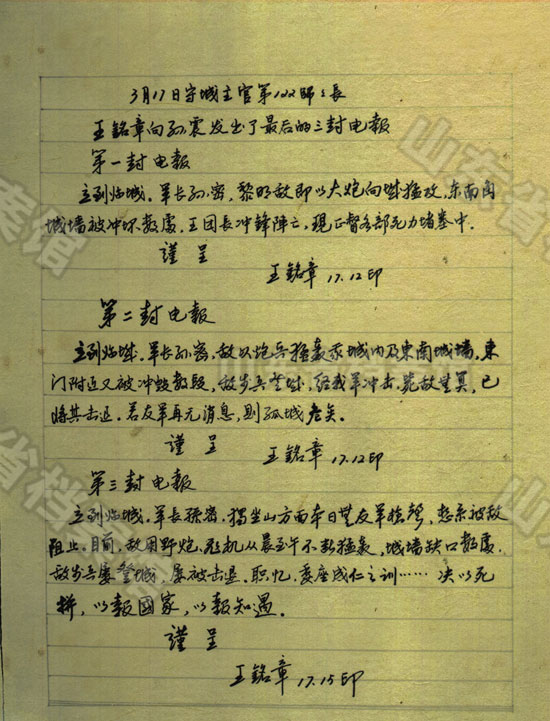 3月17日守城主官第122师师長
王銘章向孙震发出了最后的三封电报
第一封电报
立到临城。军长孙密,黎明敌即以大炮向城猛攻,东南角
城墙被冲坏数處,王团長冲锋陣亡,现正督各部死力堵塞中.
謹 呈
王銘章 17.12印
第二封电报
立到临城。军长孙密,敌以炮兵猛轰我城内及東南城墙,東
门附近又被冲毁数段,敌步兵登城,经我军冲击,毙敌其众,已
将其击退。若友军再无消息,则孤城危矣。
謹 呈
王銘章 17.12印
第三封电报
立到临城。军长孫密。獨坐山方面本日無友军槍聲,想系被敌
阻止。目前,敌用野炮、飛机从晨至午不断猛轰,城墙缺口数處,
敌步兵屡登城,屡被击退。职忆,委座成仁之训……决以死
拼,以報国家,以報知遇。
謹 呈
王銘章 17.15印
山东省档案馆